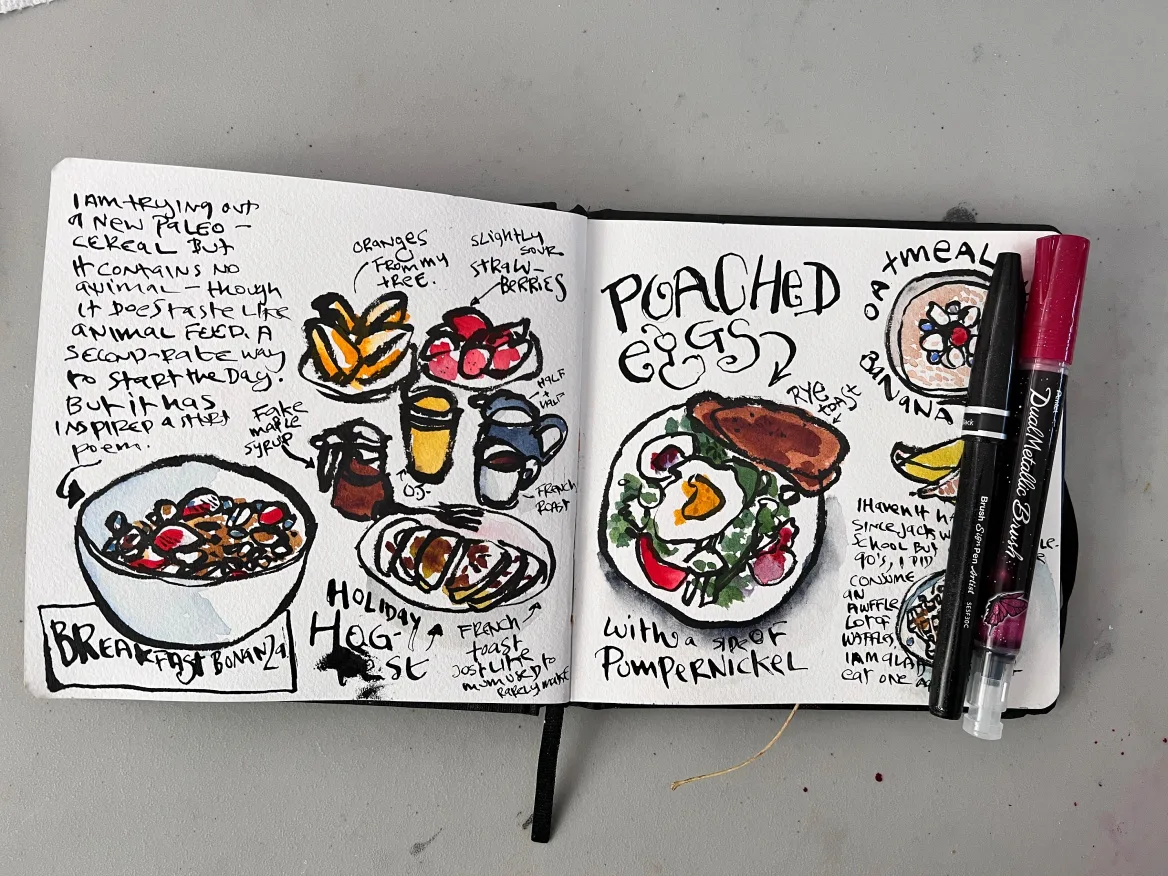 I AM TRYING OUT
A NEW PALEO-
CEREAL BUT
IT CONTAINS NO
ANIMAL - THOUGH
IT DOES TASTE LIKE
ANIMAL FEED. A
SECOND-RATE WAY
TO START THE DAY.
BUT IT HAS
INSPIRED A SHORT
POEM.
BREAKFAST BONANZA
ORANGES
FROM MY
TREE.
SLIGHTLY
SOUR
STRAW-
BERRIES
FAKE
MAPLE
SYRUP
OJ-
HALF
+
HALF
FRENCH
ROAST
HOLIDAY
HOG-
FRENCH
TOAST
JUST LIKE
MUM USED TO
RARELY MAKE
POACHED
EGGS
RYE
TOAST
WITH A SIDE OF
PUMPERNICKEL
OATMEAL
BANANA
I HAVEN'T
SINCE JACK
SCHOOL BUT
90'S, I DID
CONSUME
AN
AWFFLE
LOT OF
WAFFLES
I AM GLAD
EAT ONE
Brush Sign Pen Artist SESF30C
Pentel
Dual Metallic Brush